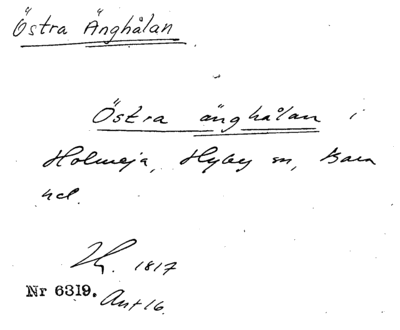 Östra Änghålan
Östra änghålan i
Holmeja, Hyby sn, Bara
hd.
1817
Nr 6319. Ant 16.